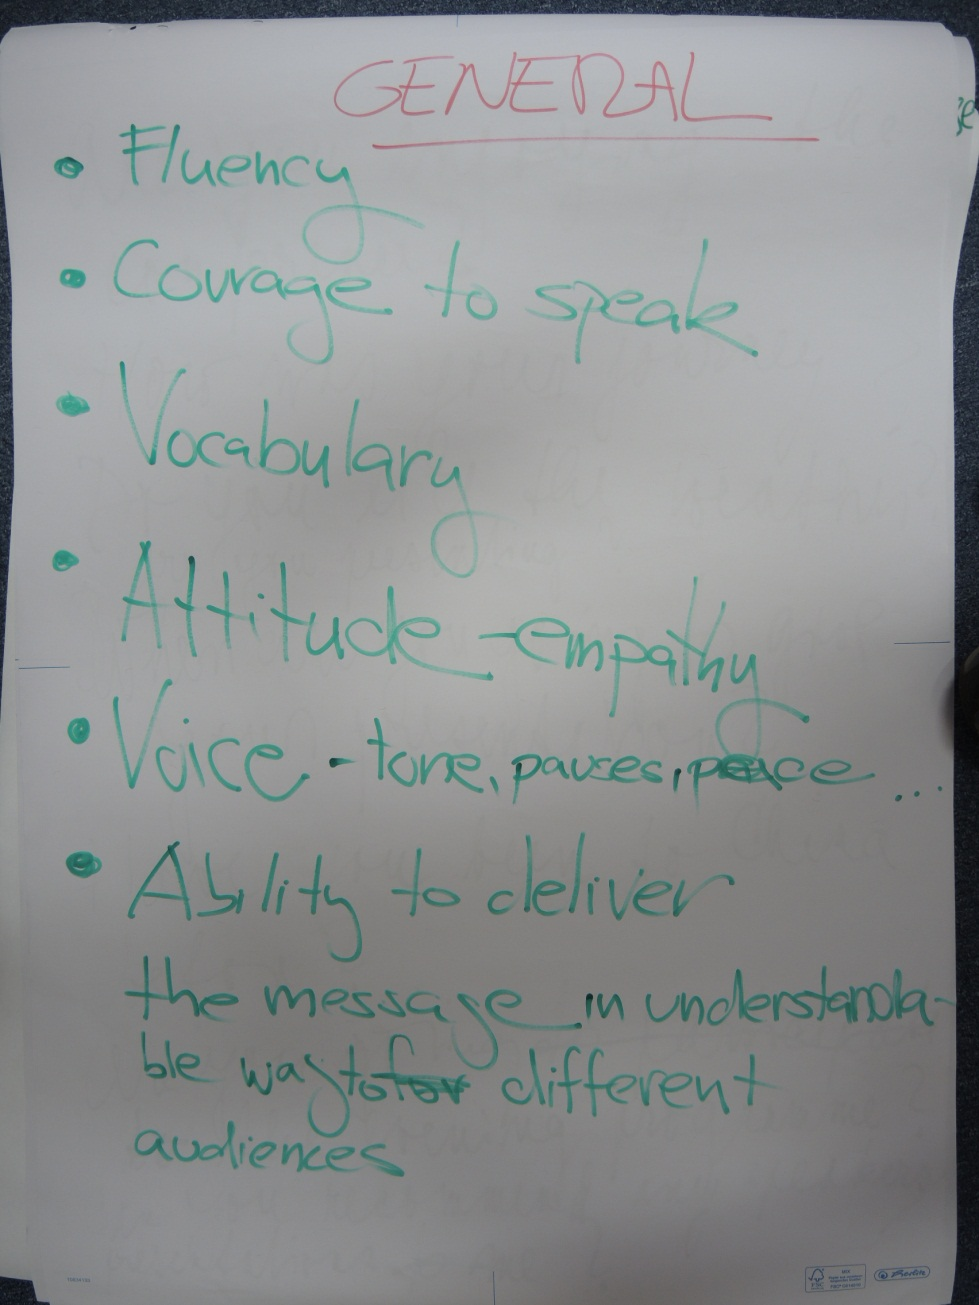 GENERAL
• Fluency
• Courage to speak
• Vocabulary
• Attitude - empathy
• Voice - tone, pauses, pace ...
• Ability to deliver
the message in understanda-
ble way to for different
audiences